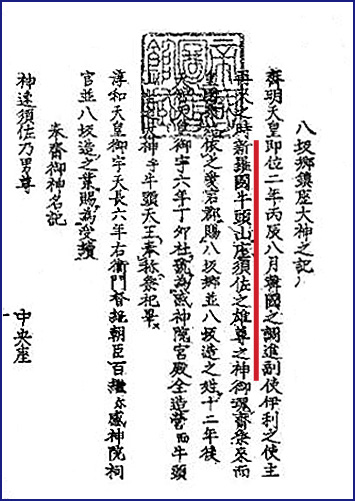 八坂郷鎮座大神之記
齊明天皇即位二年丙辰八月韓國之調進副使伊利之使主
再来之時新羅國牛頭山座須佐之雄尊之神御魂齊祭来而
皇國祭始依之愛宕郡賜八坂郷並八坂造之姓十二年後
天皇御宇六年丁卯社號為感神院宮殿全造營而牛頭
大神乎牛頭天王奉称祭祀畢
淳和天皇御宇天長六年右衛門督紀朝臣百継尓感神院祠
官並八坂造之業賜為受續
奉齊御神名記
神速須佐乃男尊 中央座